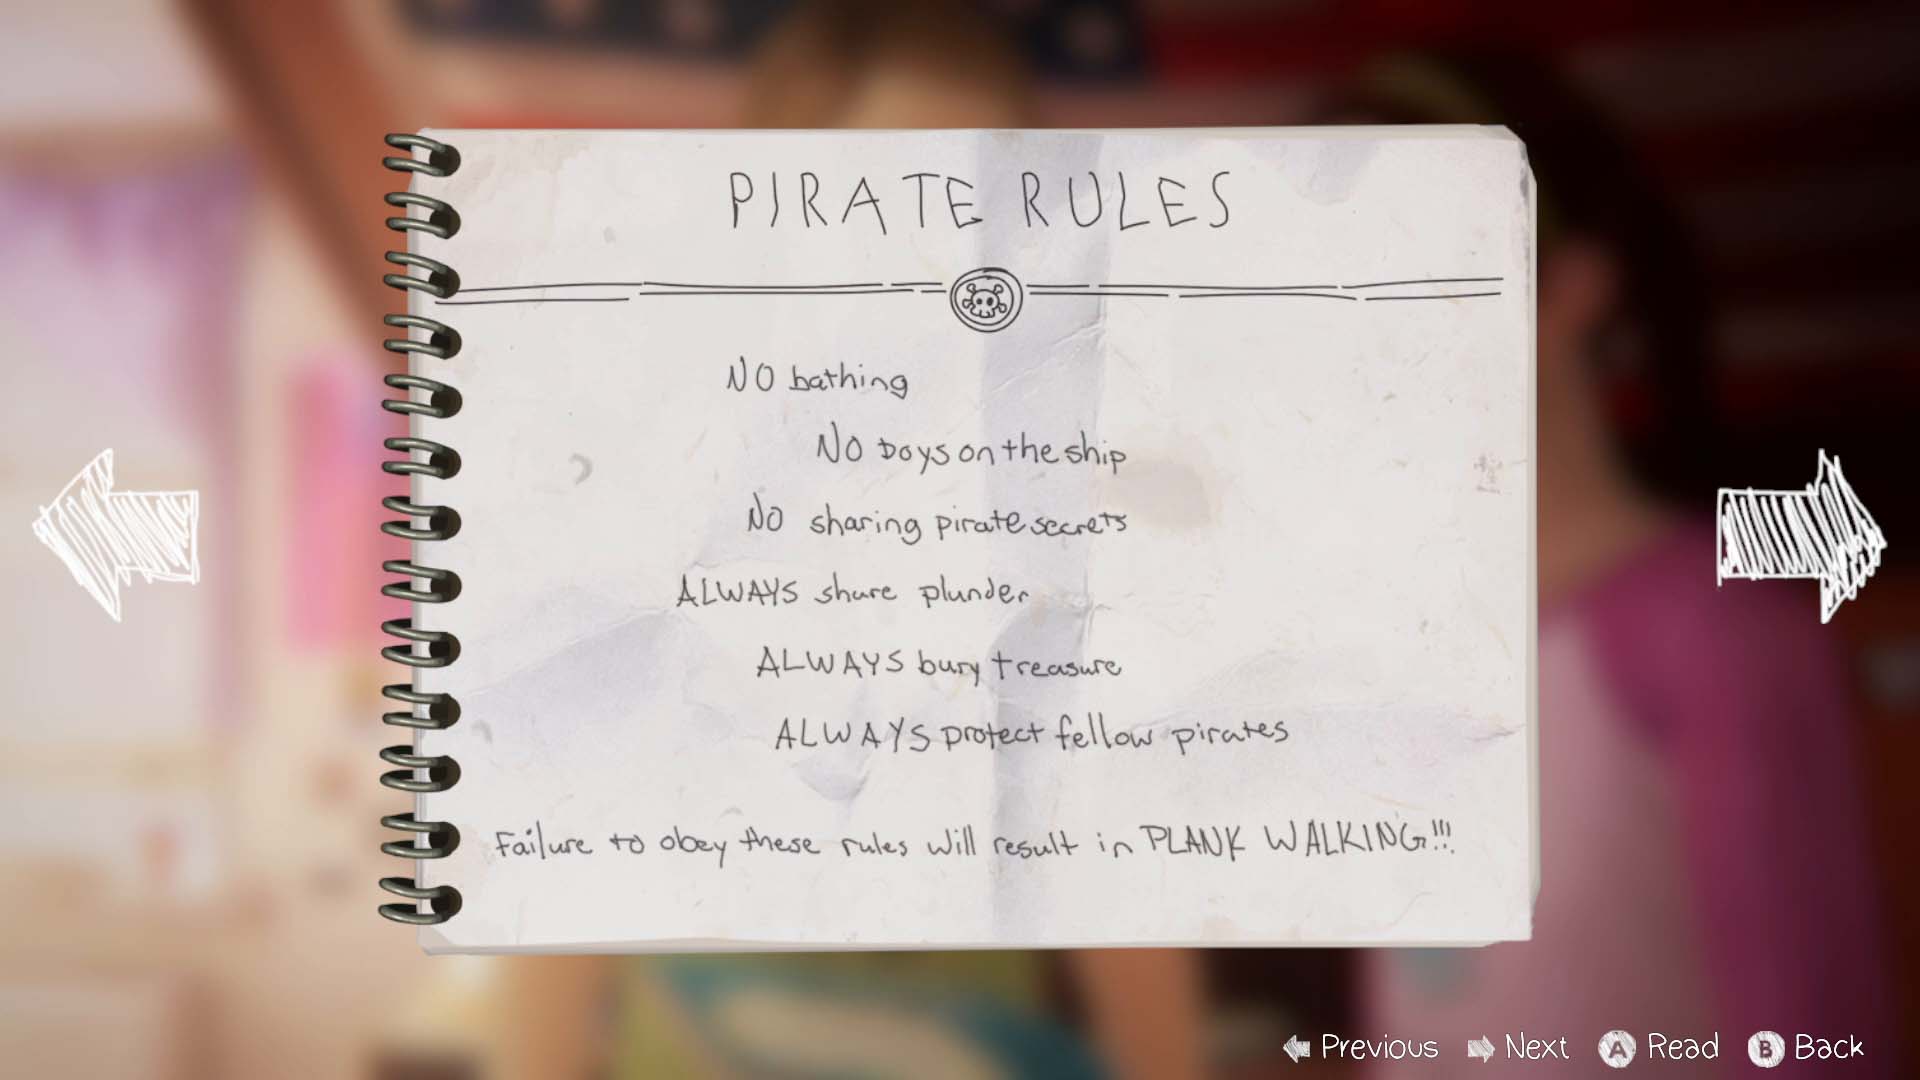 PIRATE RULES
NO bathing
NO boys on the ship
NO sharing pirate secrets
ALWAYS share plunder
ALWAYS bury treasure
ALWAYS protect fellow pirates
Failure to obey these rules will result in PLANK WALKING!!!
Previous Next A Read B Back